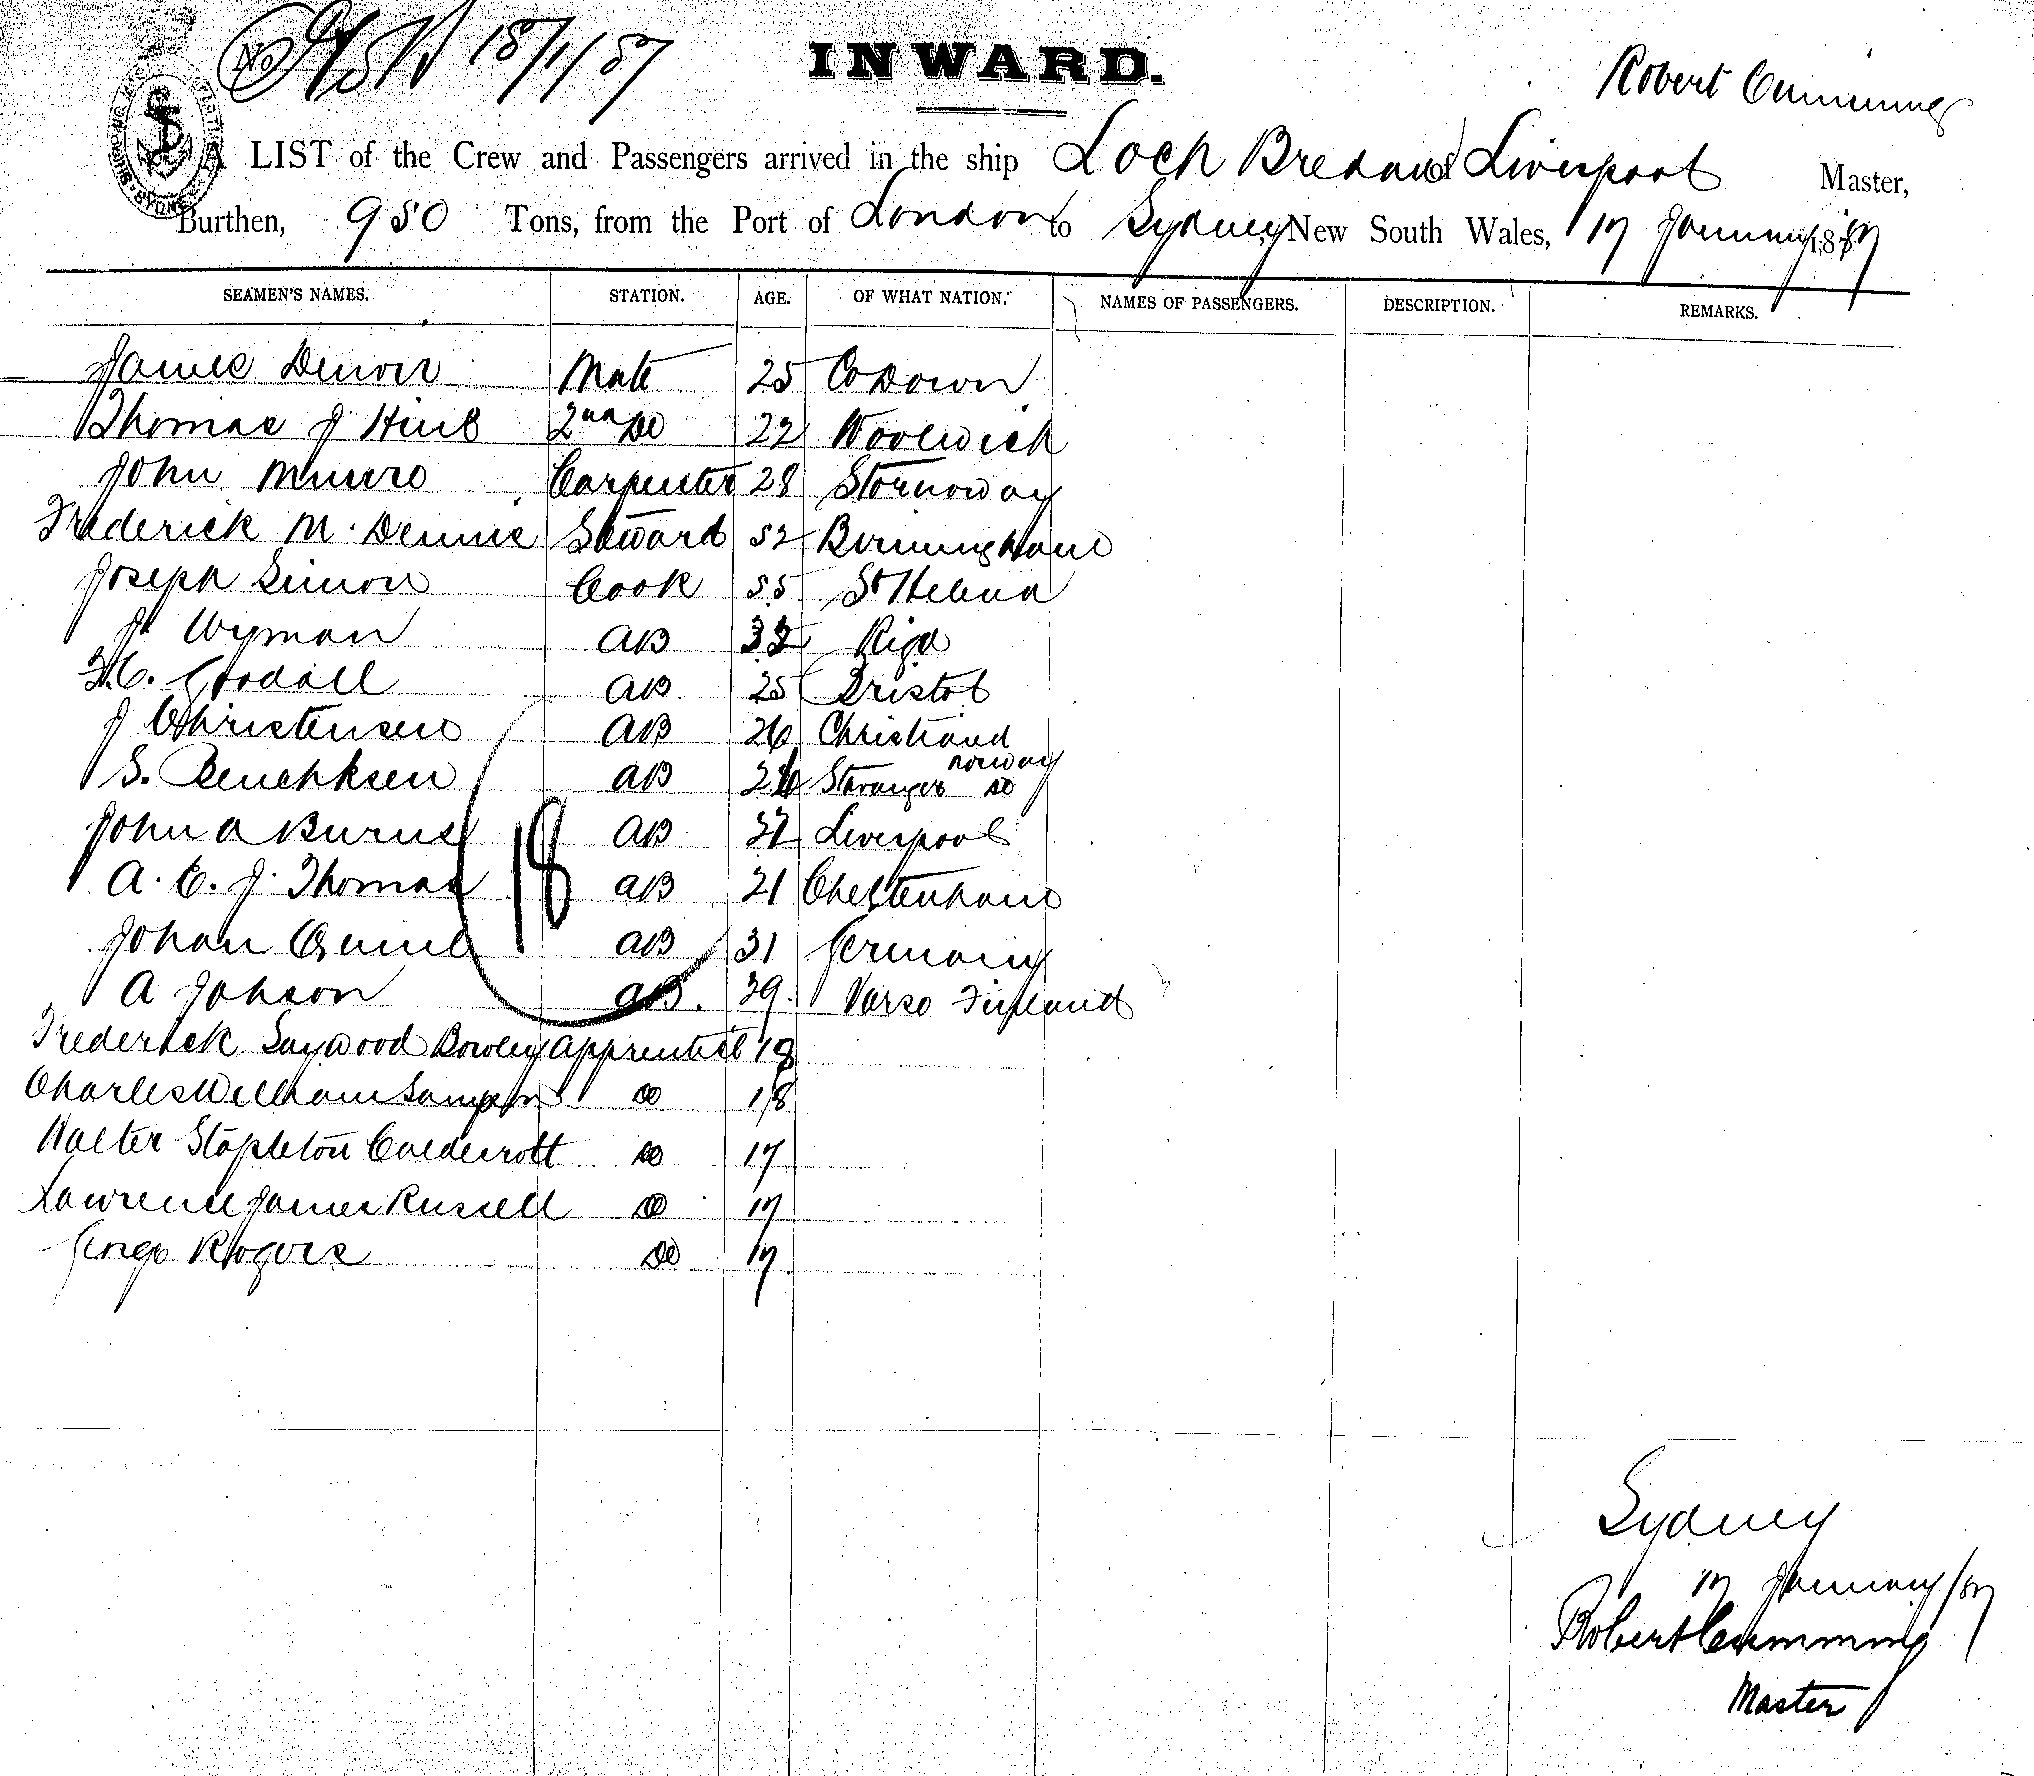 18/1/87
INWARD.
Robert Cumming
A LIST of the Crew and Passengers arrived in the ship Loch Bredan of Liverpool Master,
Burthen, 950 Tons, from the Port of London to Sydney New South Wales, 17 January 1887
SEAMEN'S NAMES. STATION. AGE. OF WHAT NATION. NAMES OF PASSENGERS. DESCRIPTION. REMARKS.
James Mate 25 Co Down
Thomas J 2nd Do 22 Woolwich
John Munro Carpenter 28 Stornoway
Frederick M. Dennis Steward 52 Birmingham
Joseph Simon Cook 55 St Helena
J Wyman AB Riga
Goodall AB 25 Bristol
J Christensen AB 26 Christiand
S. AB Stavanger norway do
John A Burns AB Liverpool
A. E. J. Thomas AB 21 Cheltenham
18
Johan AB 31 Germany
A Johson AB. 39 Finland
Frederick Saywood Bowley apprentice 18
Charles William Sampson Do 18
Walter Stapleton Caldecott Do 17
Lawrence James Russell Do 17
George Rogers Do 17
Sydney
17 January/87
Robert Cumming
Master